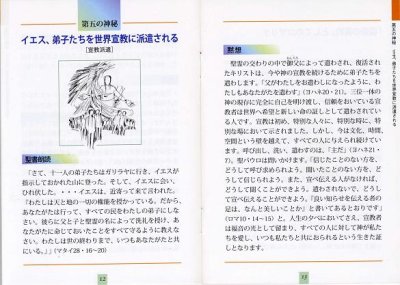 第五の神秘
イエス、弟子たちを世界宣教に派遣される
［宣教派遣］
聖書朗読
「さて、十一人の弟子たちはガリラヤに行き、イエスが
指示しておかれた山に登った。そして、イエスに会い、
ひれ伏した。・・・イエスは、近寄って来て言われた。
『わたしは天と地の一切の権能を授かっている。だから、
あなたがたは行って、すべての民をわたしの弟子にしな
さい。彼らに父と子と聖霊の名によって洗礼を授け、あ
なたがたに命じておいたことをすべて守るように教えな
さい。わたしは世の終わりまで、いつもあなたがたと共
にいる。』」（マタイ28・16〜20）
12
黙想
聖霊の交わりの中で御父によって遣わされ、復活され
たキリストは、今や神の宣教を続けるために弟子たちを
遣わします。「父がわたしをお遣わしになったように、わ
たしもあなたがたを遣わす」（ヨハネ20・21）。三位一体の
神の現存に完全に自己を明け渡し、信頼をおいている宣
教者は世界へ希望と新しい命の証しとして遣わされてい
る人です。宣教は初め、特別な人々に、特別な時に、特
別な場において示されました。しかし、今は文化、時間、
空間という壁を越えて、すべての人に与えられ続けてい
ます。呼び出し、洗い、遣わすのは、「主だ」（ヨハネ21・
7）。聖パウロは問いかけます。「信じたことのない方を、
どうして呼び求められよう。聞いたことのない方を、ど
うして信じられよう。また、宣べ伝える人がなければ、ど
うして聞くことができよう。遣わされないで、どうし
て宣べ伝えることができよう。『良い知らせを伝える者の
足は、なんと美しいことか』と書いてあるとおりです」
（ロマ10・14〜15）と。人生の夕べにおいてさえ、宣教者
は福音の光として留まり、すべての人に対して神が私た
ちを愛し、いつも私たちと共におられるという生きた証
しとなります。
13
第五の神秘 イエス、弟子たちを世界宣教に派遣される